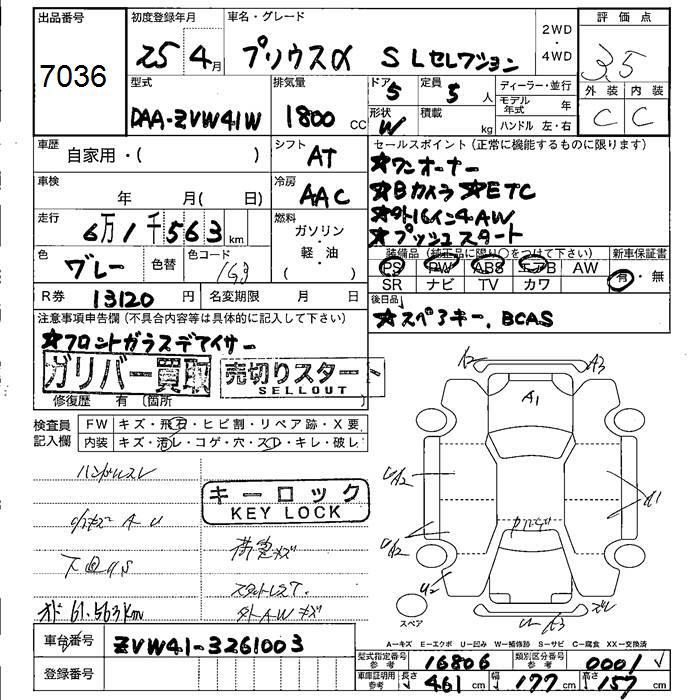 出品番号
7036
初度登録年月
25 4月
車名・グレード
プリウスα SLセレクション
2WD
・
4WD
評価点
3.5
外装 内装
C C
型式
DAA-ZVW41W
排気量
1800 cc
ドア
5
定員
5 人
形状
W
積載
kg
ディーラー・並行
モデル年式 年
ハンドル 左・右
車歴
自家用・( )
シフト
AT
セールスポイント(正常に機能するものに限ります)
☆ワンオーナー
☆Bカメラ ☆ETC
☆外16インチAW
☆プッシュスタート
車検
年 月( 日)
冷房
AAC
走行
6万1千563km
燃料
ガソリン
・
軽・油
( )
色
グレー
色替
色コード
1G3
装備品(純正品に限り○をつけて下さい)
PS PW ABS エアB AW
SR ナビ TV カワ
新車保証書
有・無
R券
13120円
名変期限 月 日
後日品
☆スペアキー、BCAS
注意事項申告欄(不具合内容等は具体的に記入して下さい)
☆フロントガラスデアイサー
ガリバー買取
売切りスタート
SELLOUT
修復歴 有(箇所
検査員記入欄
FW キズ・飛石・ヒビ割・リペア跡・X要
内装 キズ・汚レ・コゲ・穴・スレ・キレ・破レ
ハンドルスレ
キーロック
KEY LOCK
下回サS
オド 61.563km
外AWキズ
A2
A3
A1
U2
スペア
A-キズ E-エクボ U-凹み W-補修跡 S-サビ C-腐食 XX-交換済
車台番号
ZVW41-3261003
登録番号
型式指定番号
参考
16806
類別区分番号
参考
0001
車庫証明用
参考
長さ 461cm
幅 177cm
高さ 157cm